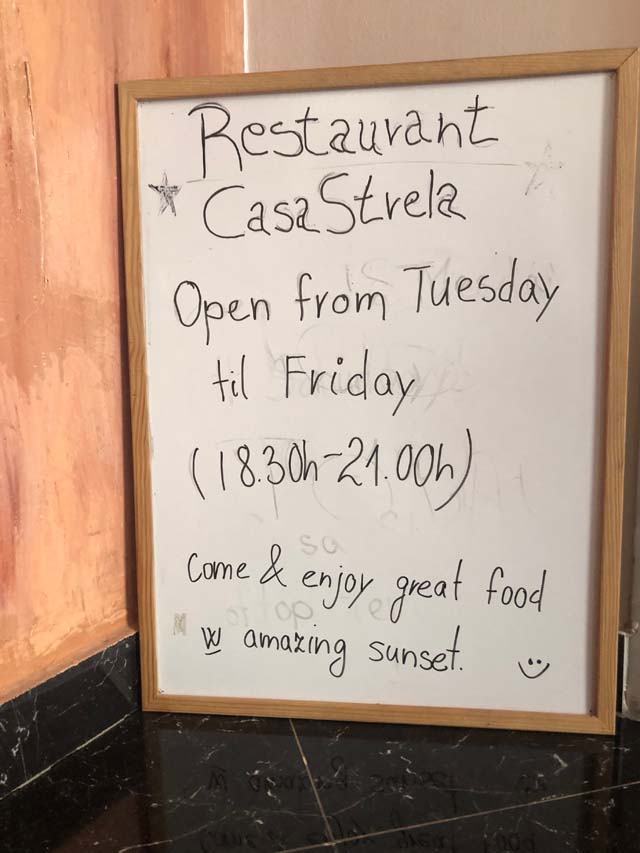 Restaurant
Casa Strela
Open from Tuesday
til Friday
(18.30h-21.00h)
Come & enjoy great food
w amazing sunset.